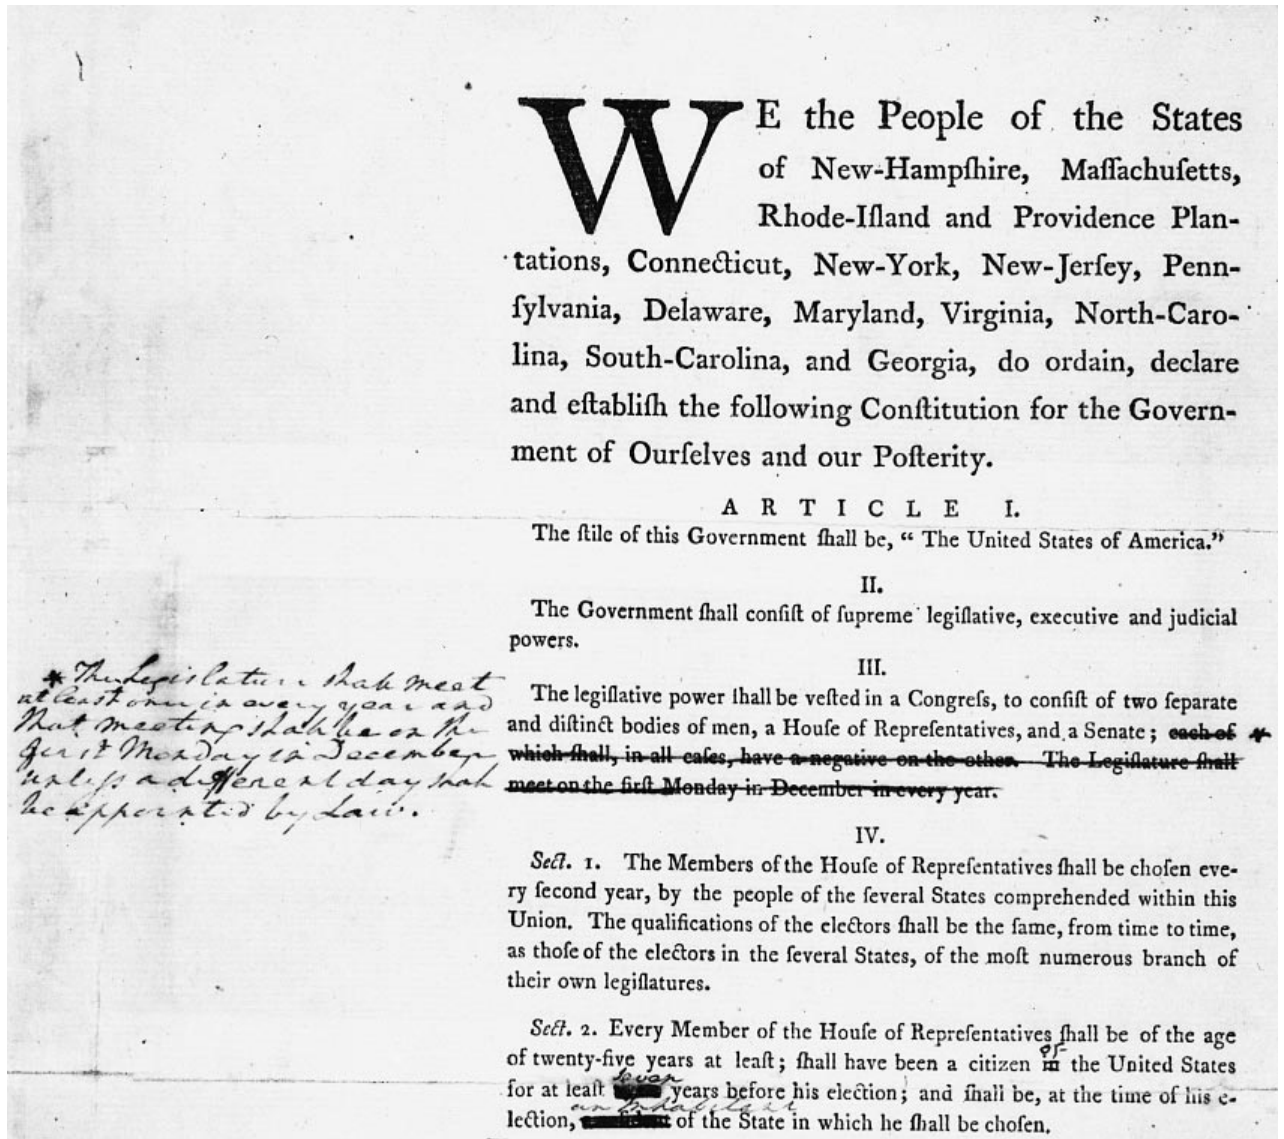 WE the People of the States
of New-Hampſhire, Maſſachuſetts,
Rhode-Iſland and Providence Plan-
tations, Connecticut, New-York, New-Jerſey, Penn-
ſylvania, Delaware, Maryland, Virginia, North-Caro-
lina, South-Carolina, and Georgia, do ordain, declare
and eſtabliſh the following Conſtitution for the Govern-
ment of Ourſelves and our Poſterity.
ARTICLE I.
The ſtile of this Government ſhall be, “ The United States of America.”
II.
The Government ſhall conſiſt of ſupreme legiſlative, executive and judicial
powers.
III.
The legiſlative power ſhall be veſted in a Congreſs, to conſiſt of two ſeparate
and diſtinct bodies of men, a Houſe of Repreſentatives, and a Senate ; each of *
which ſhall, in all caſes, have a negative on the other. The Legiſlature ſhall
meet on the firſt Monday in December in every year.
* The Legislature shall meet
at least once in every year and
that meeting shall be on the
first Monday in December
unless a different day shall
be appointed by Law.
IV.
Sect. 1. The Members of the Houſe of Repreſentatives ſhall be choſen eve-
ry ſecond year, by the people of the ſeveral States comprehended within this
Union. The qualifications of the electors ſhall be the ſame, from time to time,
as thoſe of the electors in the ſeveral States, of the moſt numerous branch of
their own legiſlatures.
Sect. 2. Every Member of the Houſe of Repreſentatives ſhall be of the age
of
of twenty-five years at leaſt ; ſhall have been a citizen in the United States
seven
for at leaſt years before his election ; and ſhall be, at the time of his e-
an Inhabitant
lection, of the State in which he ſhall be choſen.